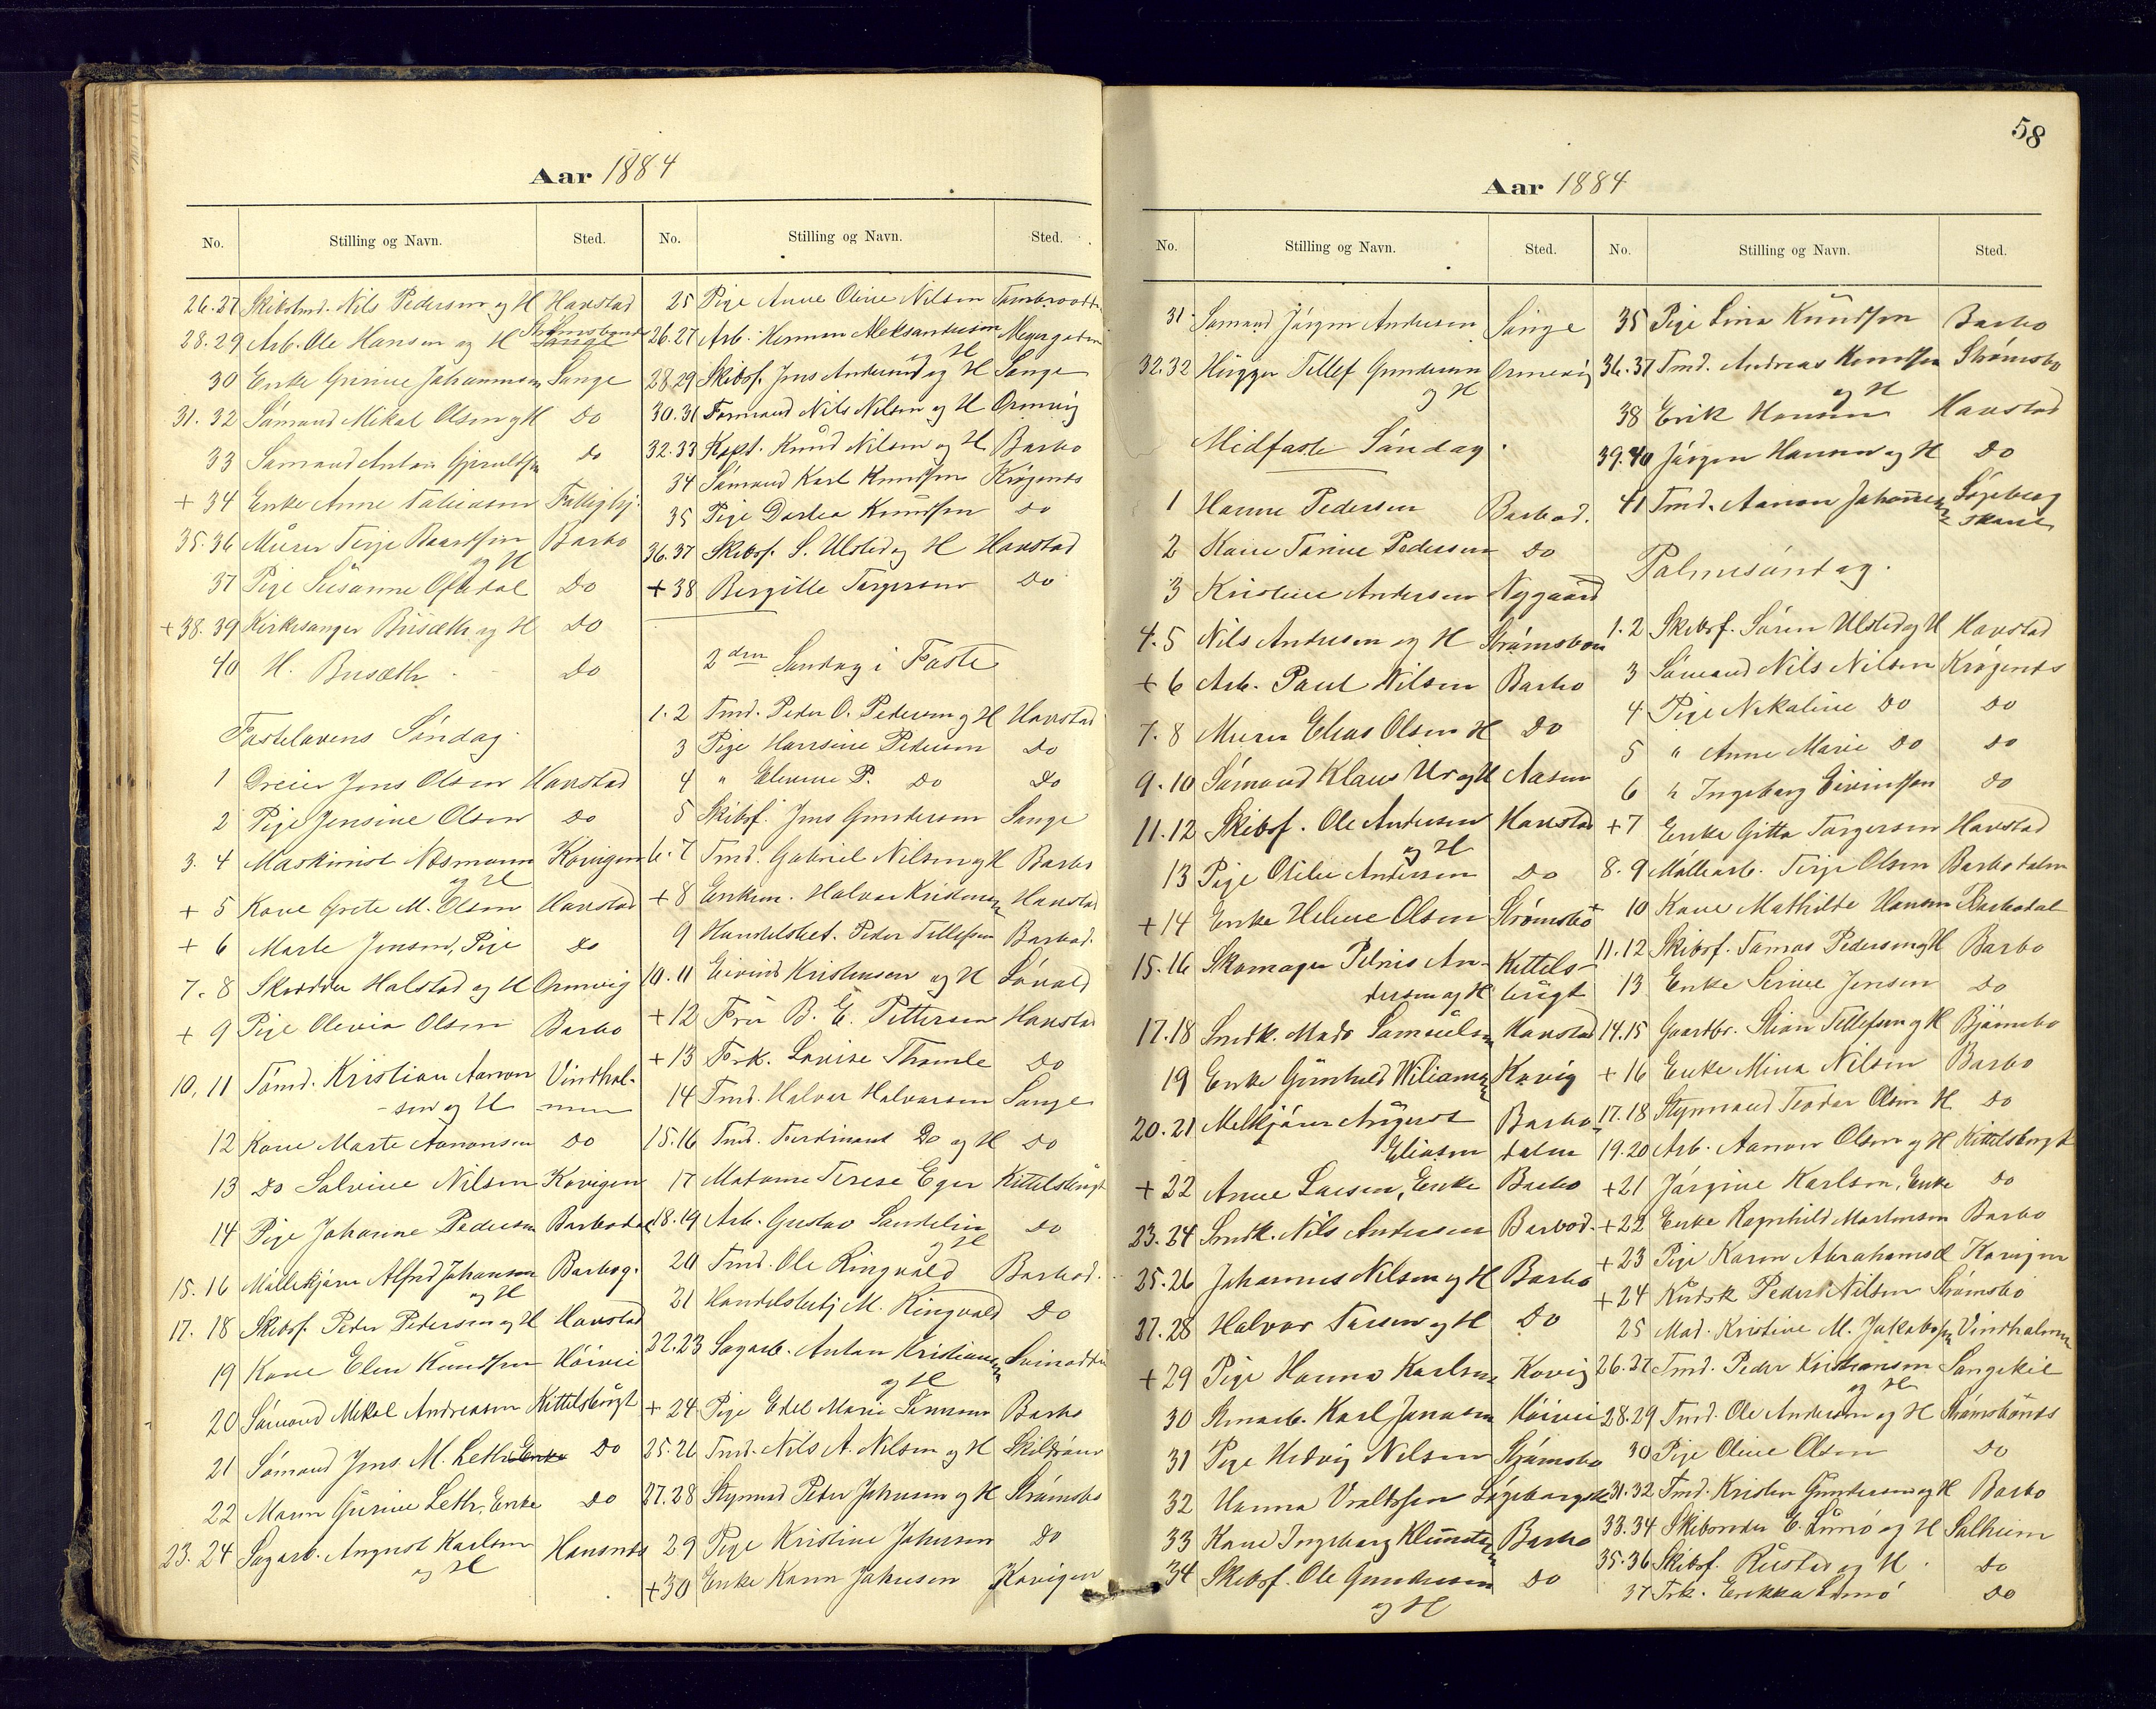 Aar 1884
No. Stilling og Navn. Sted. No. Stilling og Navn. Sted.
26.27 Skibstmd. Nils Pedersen og H Havstad
28.29 Arb. Ole Hansen og H Strømsbunds
30 Enke Gurine Johannesen Songe
31.32 Sömand Mikal Olsen og H Do
33 Sömand Anton Gjeruldsen do
+ 34 Enke Anne Tobiasen
35.36 Murer Terje Baardsen Barbo
og H
37 Pige Susanne Ofstdal Do
+38.39 Kirkesanger Busæth og H Do
40 H. Busæth Do
Fastelavens Söndag.
1 Dreier Jens Olsen Havstad
2 Pige Jensine Olsen Do
3. 4 Maskinist Næsmann Kovigen
og H
+ 5 Kone Grete M. Olsen Havstad
+ 6 Marte Jensen, Pige do
7. 8 Skrædder Halstad og H Ormvig
+ 9 Pige Olevia Olsen Barbo
10, 11 Tömd. Kristian Aanon Vindhol-
sen og H men
12 Kone Marte Aanonsen Do
13 Do Salvine Nilsen Kovigen
14 Pige Johanne Pedersen Barbodal
15. 16 Möllekjörer Alfred Johansen Barbog.
og H
17. 18 Skibsf. Peder Pedersen og H Havstad
19 Kone Elen Knudsen Höivei
20 Sömand Mikal Andreasen Kittelsbugt
21 Sömand Jens M. Leth Enke Do
22 Maren Gurine Leth, Enke Do
23. 24 Sagarb. August Karlsen Havsnes
og H
25 Pige Anne Oline Nilsen
26.27 Arb. Herman Aleksandersen Meyergaden
og H
28.29 Skibsf. Jens Andersen og H Songe
30.31 Formand Nils Nilsen og H Ormvig
32.33 Kapt. Knud Nilsen og H Barbo
34 Sömand Karl Knudsen Krögenes
35 Pige Dortea Knudsen Do
36.37 Skibsf. S. Ulsted og H Havstad
+38 Bergitte Torgersen Do
2den Söndag i Faste
1.2 Tmd. Peder O. Pedersen og H Havstad
3 Pige Hansine Pedersen Do
4 " Elevine P. Do Do
5 Skibsf. Jens Gundersen Songe
6.7 Tmd. Gabriel Nilsen og H Barbo
+8 Enkem. Halvor Kristensen Havstad
9 Handelsbet. Peder Tellefsen Barbod.
10.11 Eivind Kristensen og H Lövold
+12 Fru B. E. Pettersen Havstad
+13 Frk. Lovise Thomle Do
14 Tmd. Halvor Halvorsen Songe
15.16 Tmd. Ferdinant Do og H Do
17 Madame Terese Eger Kittelsbugt
18.19 Arb. Gustav Sandelin Do
og H
20 Tmd. Ole Ringvold Barbod.
21 Handelsbetj M. Ringvold Do
22.23 Sagarb. Anton Kristiansen Svinodden
og H
+24 Pige Edel Marie Barbo
25.26 Tmd. Nils A. Nilsen og H
27.28 Styrmd Peder Johnsen og H Strömsbo
29 Pige Kristine Johnsen Do
+30 Enke Karen Johnsen Kovigen
58
Aar 1884
No. Stilling og Navn. Sted. No. Stilling og Navn. Sted.
31. Sömand Jörgen Andersen Songe
32.32 Hugger Tellef Gundersen Ormevig
og H
Midfaste Söndag.
1 Hanne Pedersen Barbod.
2 Kone Torine Pedersen Do
3 Kristine Andersen Nygaard
4.5 Nils Andersen og H Strömsbom
+ 6 Arb. Paul Nilsen Barbo
7. 8 Murer Elias Olsen H Do
9.10 Sömand Klaus Ur og H Aasen
11.12 Skibsf. Ole Andersen Havstad
og H
13 Pige Otilie Andersen Do
+14 Enke Helene Olsen Strömsbo
15.16 Skomager Petrus An- Kittels-
dersen og H bugt
17.18 Smdk. Mads Samuelsen Havstad
19 Enke Gunhild Wiliamsen Kovig
20.21 Melkjörer August Barbo
Eliasen dalen
+22 Anne Larsen, Enke Barbo
23.24 Smdk. Nils Andersen Barbod.
25.26 Johannes Nilsen og H Barbo
27.28 Halvor Tarsen og H Do
+29 Pige Hanna Karlsen Kovig
30 Stenarb. Karl Jonasen Höivei
31 Pige Hedvig Nilsen Strömsbo
32 Hanna Lögebergsk
33 Kone Ingeborg Klemetsen Barbo
34 Skibsf. Ole Gundersen Do
og H
35 Pige Lina Knudsen Barbo
36.37 Tmd. Andreas Knudsen Strømsbo
og H
38 Erik Hansen Havstad
39.40 Jörgen Hansen og H Do
41 Tmd. Aanon Johannesen Lögeberg
skaret
Palmesöndag.
1.2 Skibsf. Sören Ulsted og H Havstad
3 Sömand Nils Nilsen Krögenes
4 Pige Nikoline Do Do
5 " Anne Marie Do Do
6 " Ingeborg Eivindsen Do
+7 Enke Gitta Torgersen Havstad
8.9 Möllearb. Terje Olsen Barbodalen
+ 10 Kone Mathilde Hansen Barbodal
11.12 Skibsf. Tomas Pedersen og H Barbo
13 Enke Serine Jensen Do
14.15 Gaardbr. Stian Tellefsen og H Björnebo
+16 Enke Mina Nilsen Barbo
17.18 Styrmand Teodor Olsen H Do
19.20 Arb. Aanon Olsen og H Kittelsbugt
+21 Jörgine Karlsen, Enke Do
+22 Enke Ragnhild Mortensen Barbo
+23 Pige Karen Abrahamsd. Kovigen
+24 Kudsk Peder Nilsen Strömsbo
25 Mad. Kristine M. Jakobsen Vindholmen
26.27 Tmd. Peder Kristiansen Songekil
og H
28.29 Tmd. Ole Andersen og H Strömsbunds
30 Pige Oline Olsen Do
31.32 Tmd. Kristen Gundersen og H Barbo
33.34 Skibsreder E. Lunö og H Solheim
35.36 Skibsf. Rustad og H Do
37 Frk. Erikka Lunö Do